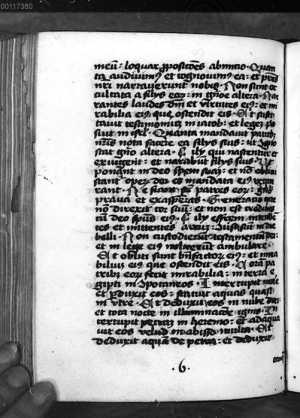 00117380
meū: loquar ppositōes ab initio. Quan
ta audivimꝰ et cognovimꝰ ea: et pres
nri narraverunt nobis. Non sunt oc
cultata a filijs eoꝝ: in gn̄one altera. Nar
rantes laudes dn̄i et virtutes eiꝰ: et mi
rabilia eiꝰ que fecit. Et susci
tavit testimoniū in iacob: et legē po
suit in isrl. Quanta mandavit patribꝰ
nr̄is nota facere ea filijs suis: ut cognos
cat gn̄o altera. Filij qui nascentur et
exurgent: et narrabūt filijs suis. Ut
ponant in deo spem suā: et nō oblivi
scant operū dei et mandata eiꝰ exqui
rant. Ne fiant sic̄ patres eoꝝ: gn̄o
prava et exasperās. Generatio que
nō direxit cor suū: et non est creditus
cū deo spūs eiꝰ. Filij effrem intendētes
et mittentes arcū: conversi sūt in die
belli. Non custodierūt testamentū dei:
et in lege eiꝰ noluerūt ambulare.
Et obliti sunt bn̄factoꝝ eiꝰ: et mira
biliū eiꝰ que ostendit eis. Coram pa
tribꝰ eoꝝ fecit mirabilia: in terra e
gipti in campo taneos. Interrupit mare
et pduxit eos: statuit aquas quasi
in utre. Et deduxit eos in nube diei:
et tota nocte in illuminatōe ignis. In
terrupit petrā in heremo: et adaqua
vit eos velud in abisso multa. Et
deduxit aquā de petra: et deduxit
6